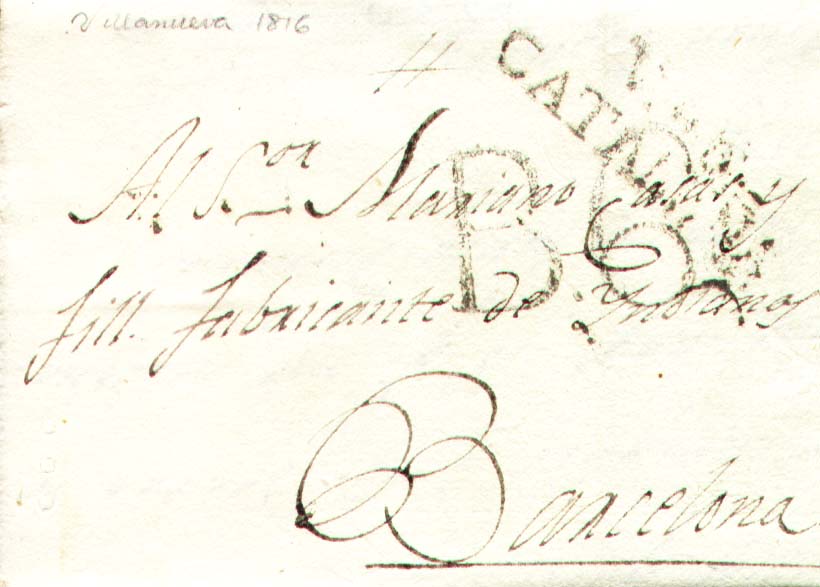 Villanueva 1816
CATAL
B 6
Al S.or Mariano Casas y
fill. fabricante de Yndianas
Barcelona